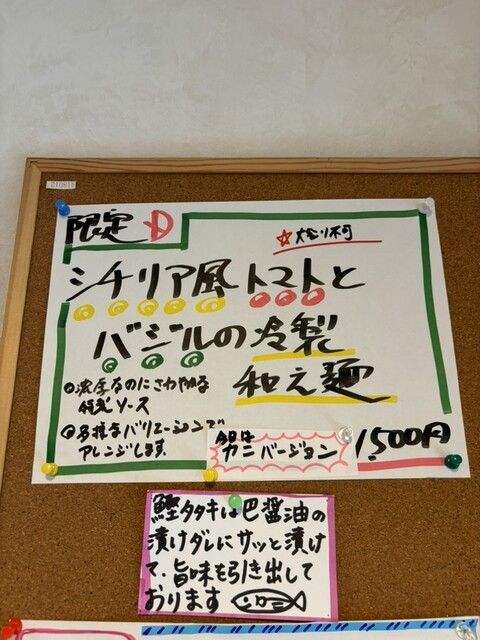 限定 D
☆大盛り不可
シチリア風トマトと
バジルの冷製
和え麺
●濃厚なのにさわやかな
特製ソース
●多様なバリエーションで
アレンジします
今日は
カニバージョン
1,500円
鰹タタキは巴醤油の
漬けダレにサッと漬け
て、旨味を引き出して
おります